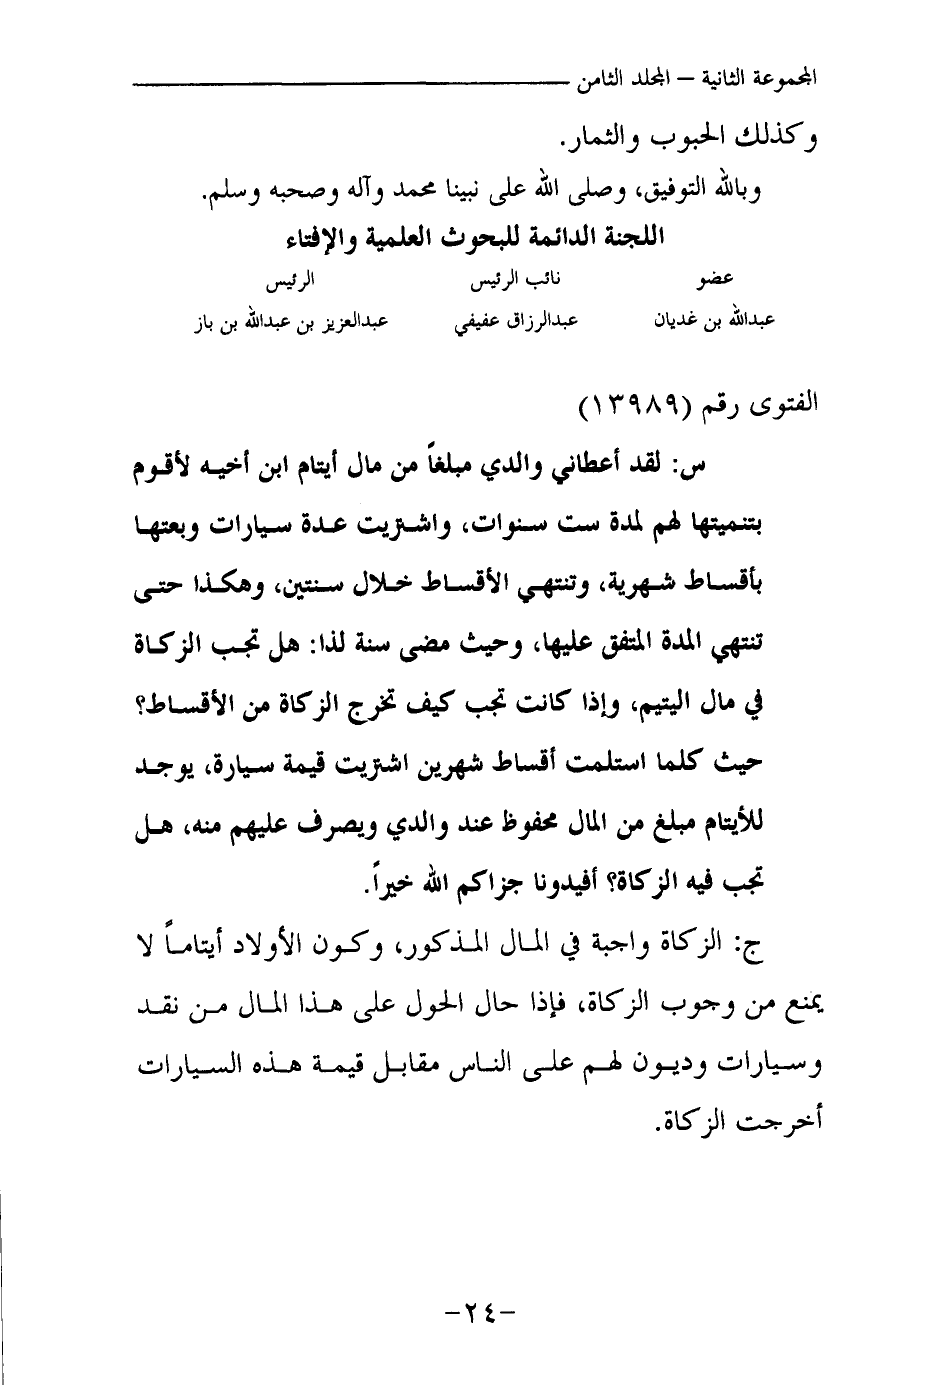 المجموعة الثانية – المجلد الثامن
وكذلك الحبوب والثمار.
وبالله التوفيق، وصلى الله على نبينا محمد وآله وصحبه وسلم.
اللجنة الدائمة للبحوث العلمية والإفتاء
عضو نائب الرئيس الرئيس
عبدالله بن غديان عبدالرزاق عفيفي عبدالعزيز بن عبدالله بن باز
الفتوى رقم (١٣٩٨٩)
س: لقد أعطاني والدي مبلغاً من مال أيتام ابن أخيه لأقوم
بتنميتها لهم لمدة ست سنوات، واشتريت عدة سيارات وبعتها
بأقساط شهرية، وتنتهي الأقساط خلال سنتين، وهكذا حتى
تنتهي المدة المتفق عليها، وحيث مضى سنة لذا: هل تجب الزكاة
في مال اليتيم، وإذا كانت تجب كيف تخرج الزكاة من الأقساط؟
حيث كلما استلمت أقساط شهرين اشتريت قيمة سيارة، يوجد
للأيتام مبلغ من المال محفوظ عند والدي ويصرف عليهم منه، هل
تجب فيه الزكاة؟ أفيدونا جزاكم الله خيراً.
ج: الزكاة واجبة في المال المذكور، وكون الأولاد أيتاماً لا
يمنع من وجوب الزكاة، فإذا حال الحول على هذا المال من نقد
وسيارات وديون لهم على الناس مقابل قيمة هذه السيارات
أخرجت الزكاة.
-٢٤-